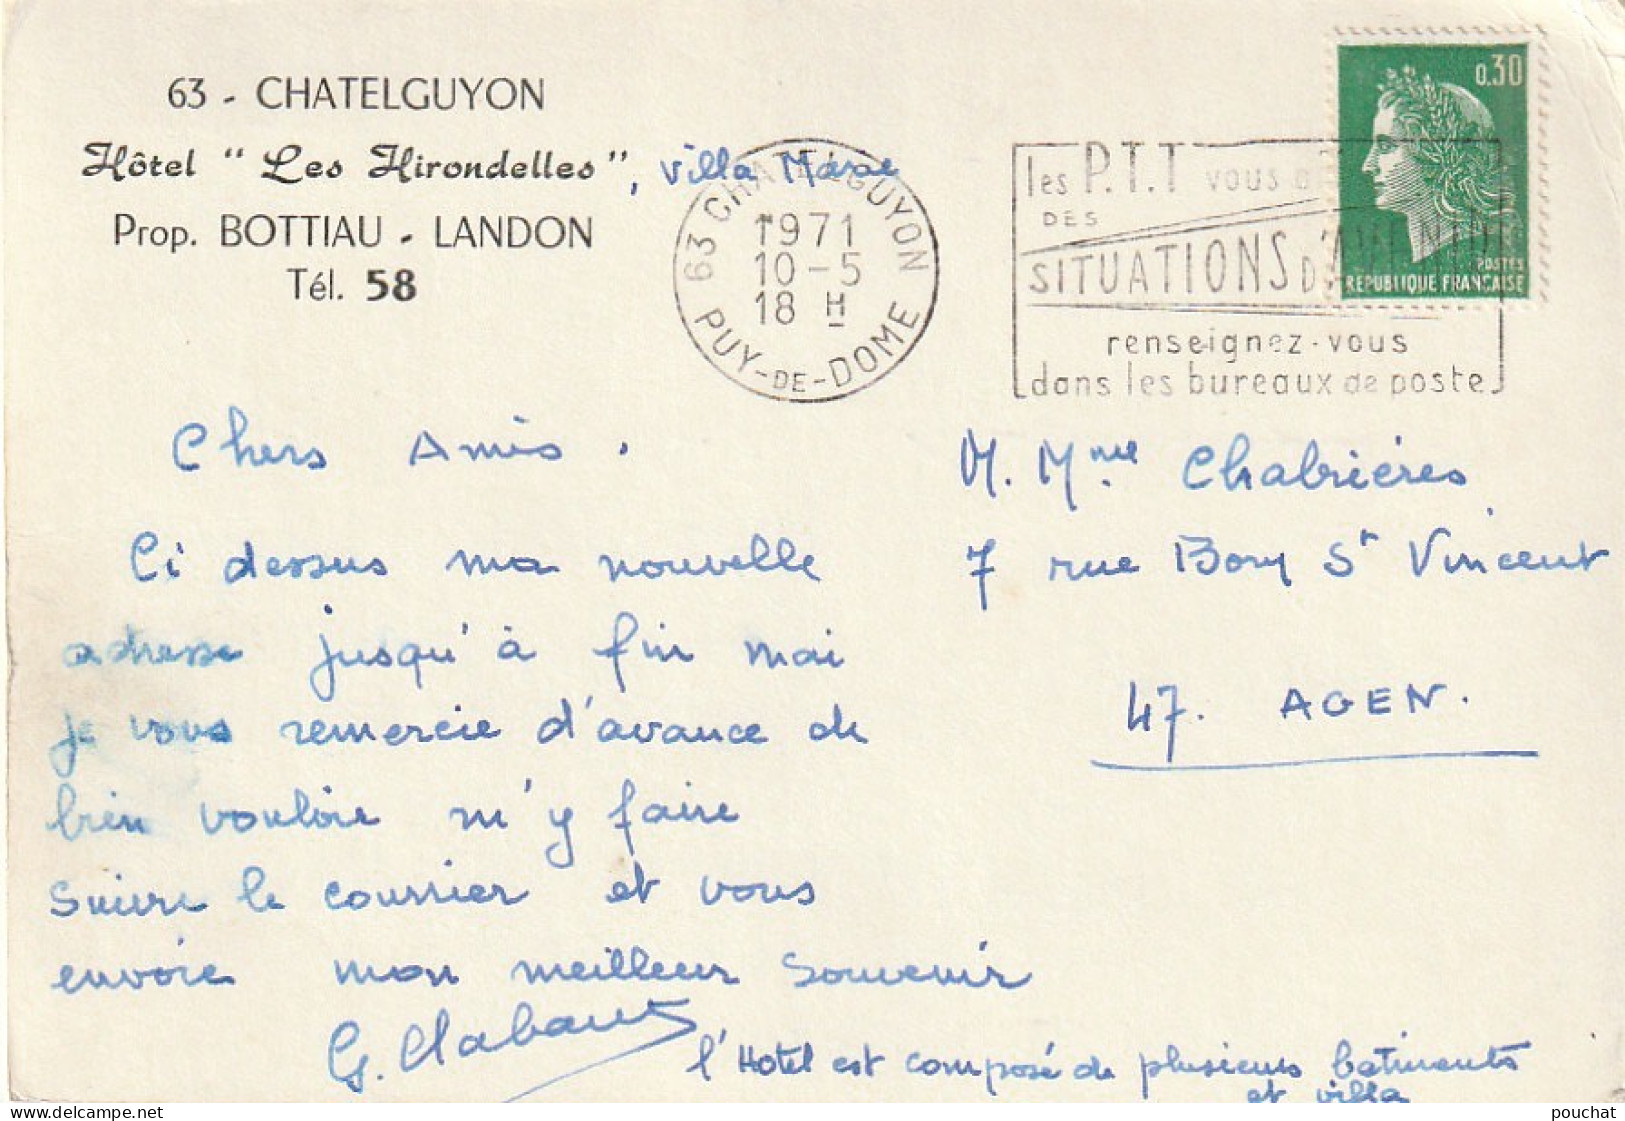 63 - CHATELGUYON
Hôtel " Les Hirondelles ", Villa
Prop. BOTTIAU - LANDON
Tél. 58
63 CHATELGUYON
1971
10-5
18 H
PUY-DE-DOME
les P.T.T VOUS
DES
SITUATIONS D'
renseignez-vous
dans les bureaux de poste
0.30
POSTES
REPUBLIQUE FRANÇAISE
Chers Amis.
Ci dessus ma nouvelle
adresse jusqu'à fin mai
je vous remercie d'avance de
bien vouloir m'y faire
suivre le courrier et vous
envoie mon meilleur souvenir
G.
l'Hotel est composé de plusieurs batiments
et villa
M. Mme Chabrières
7 rue Bory St Vincent
47. AGEN.
pouchat